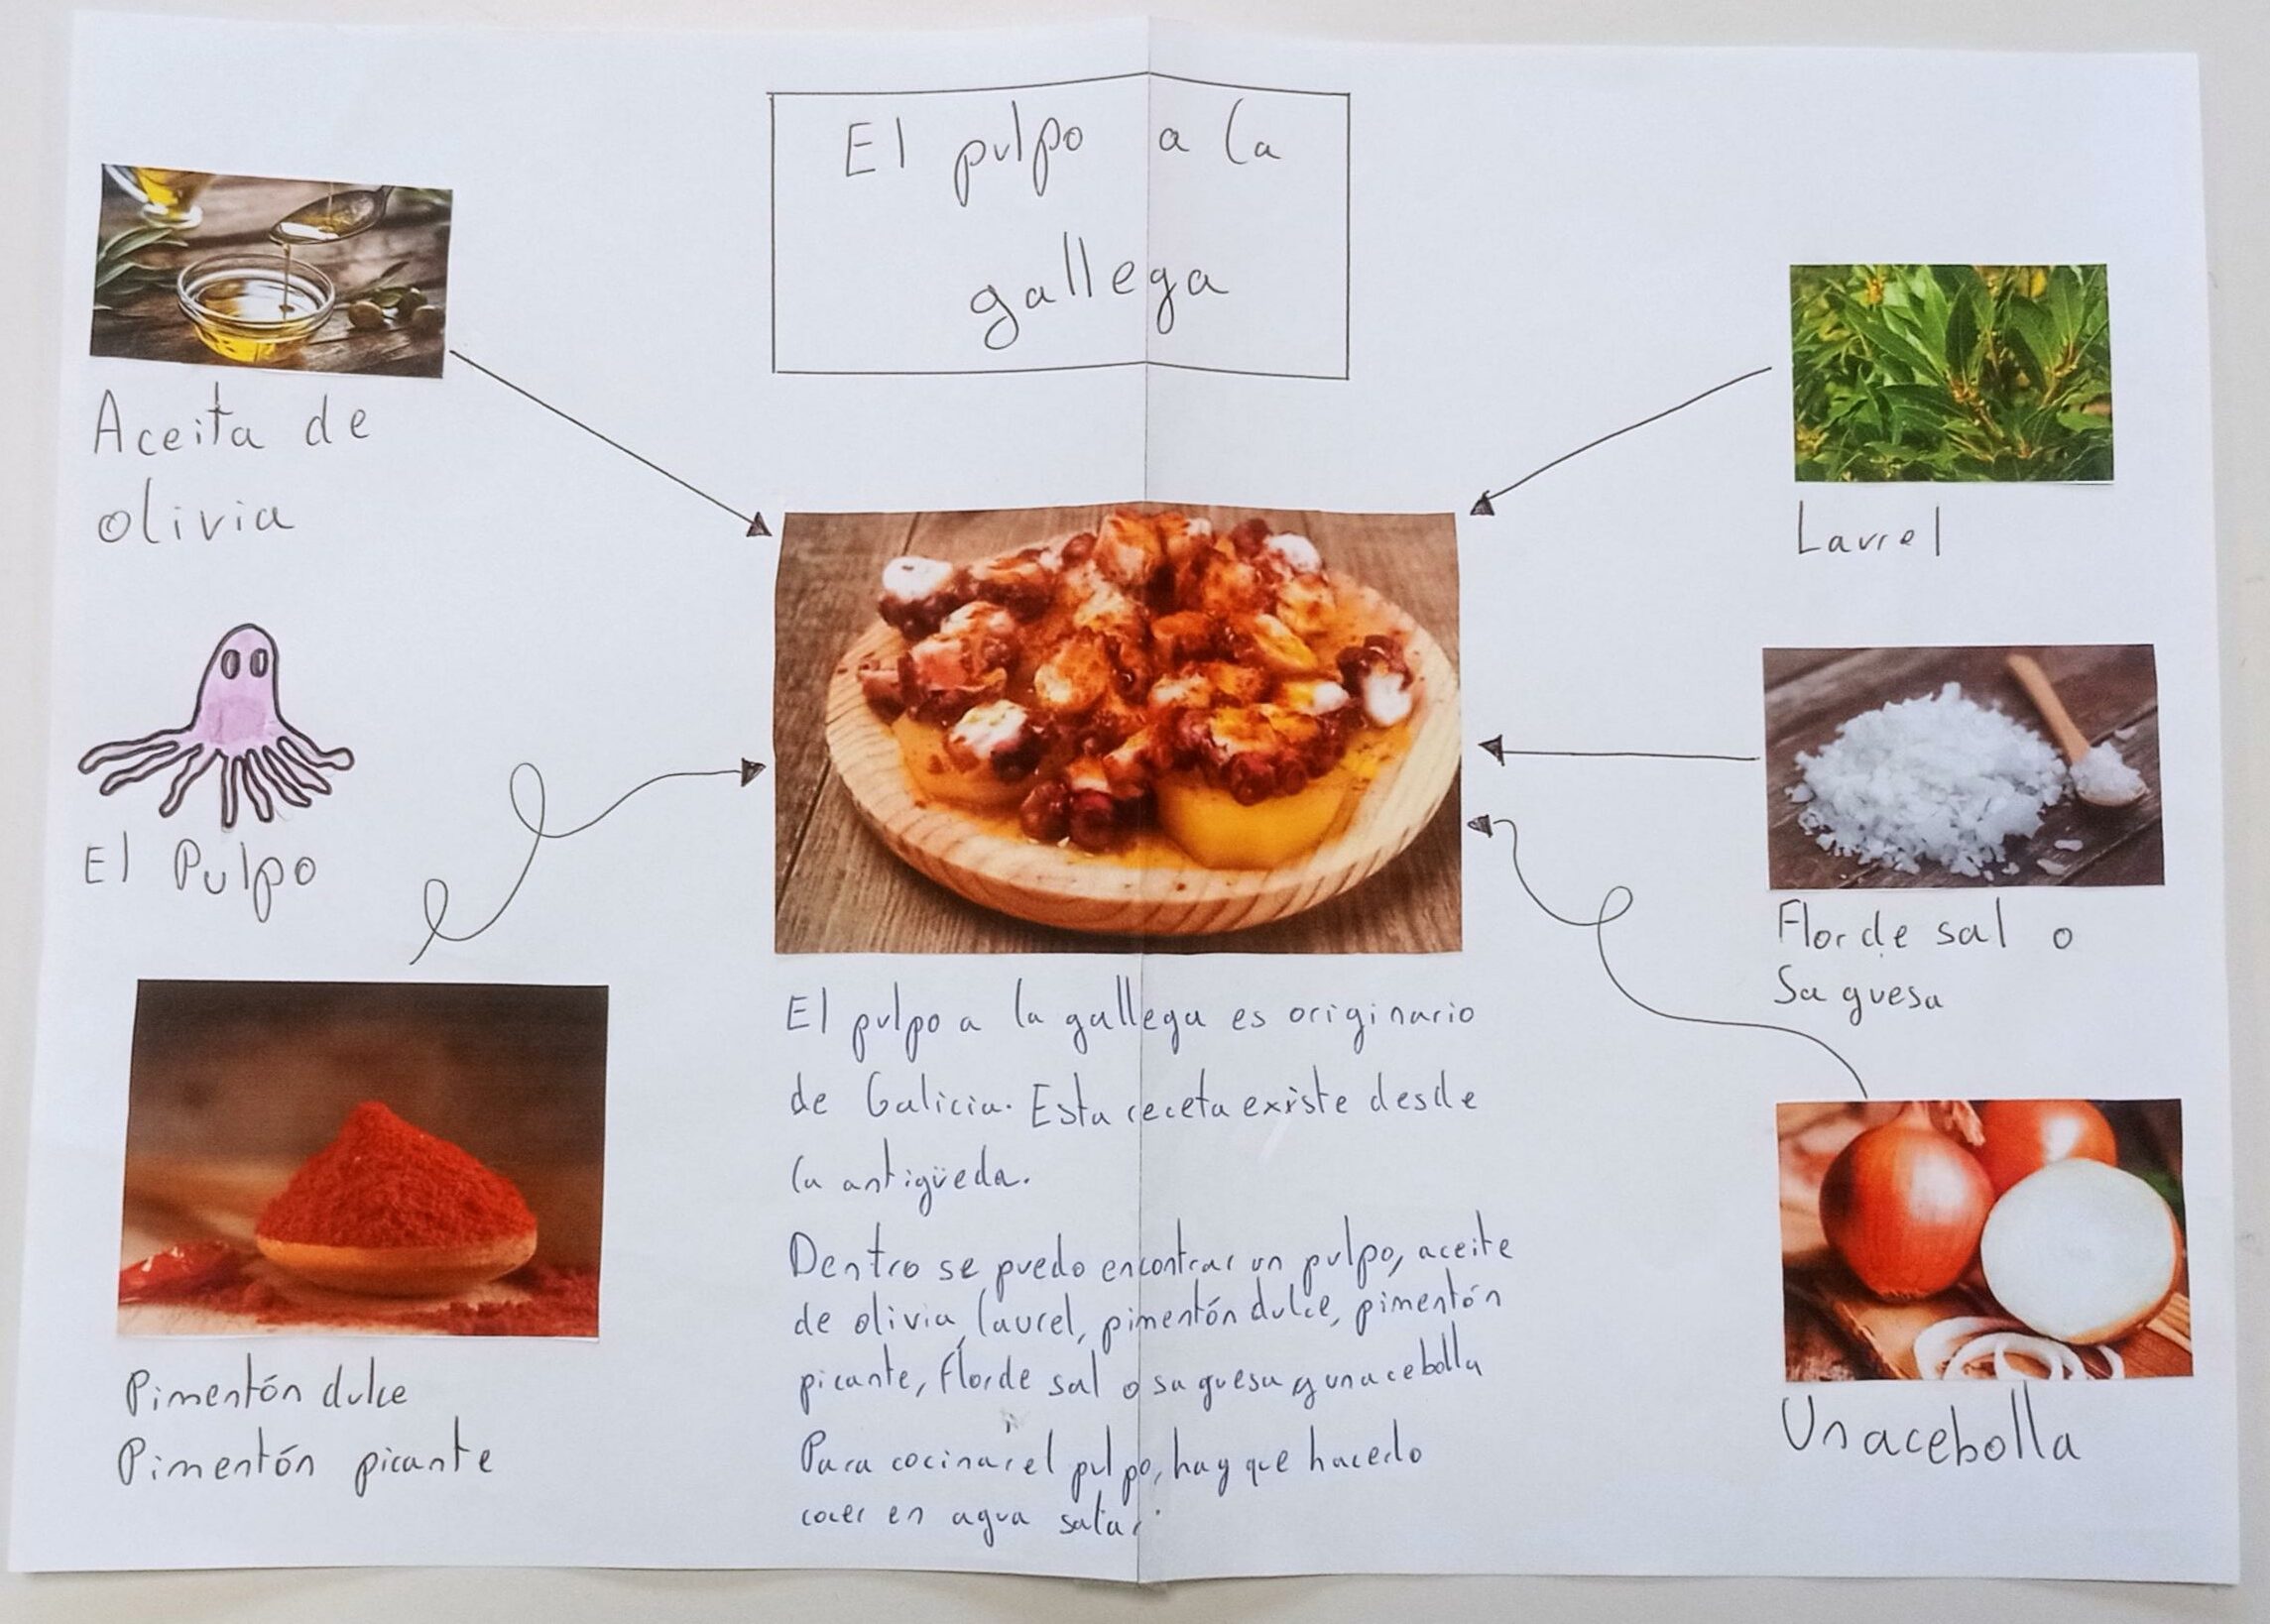 El pulpo a la
gallega
Aceita de
olivia
Laurel
El Pulpo
Flor de sal o
Sa guesa
Pimentón dulce
Pimentón picante
Un acebolla
El pulpo a la gallega es originario
de Galicia. Esta receta existe desde
la antigüeda.
Dentro se puedo encontrar un pulpo, aceite
de olivia, laurel, pimentón dulce, pimentón
picante, flor de sal o sa guesa y una cebolla
Para cocinar el pulpo, hay que hacerlo
cocer en agua salar.